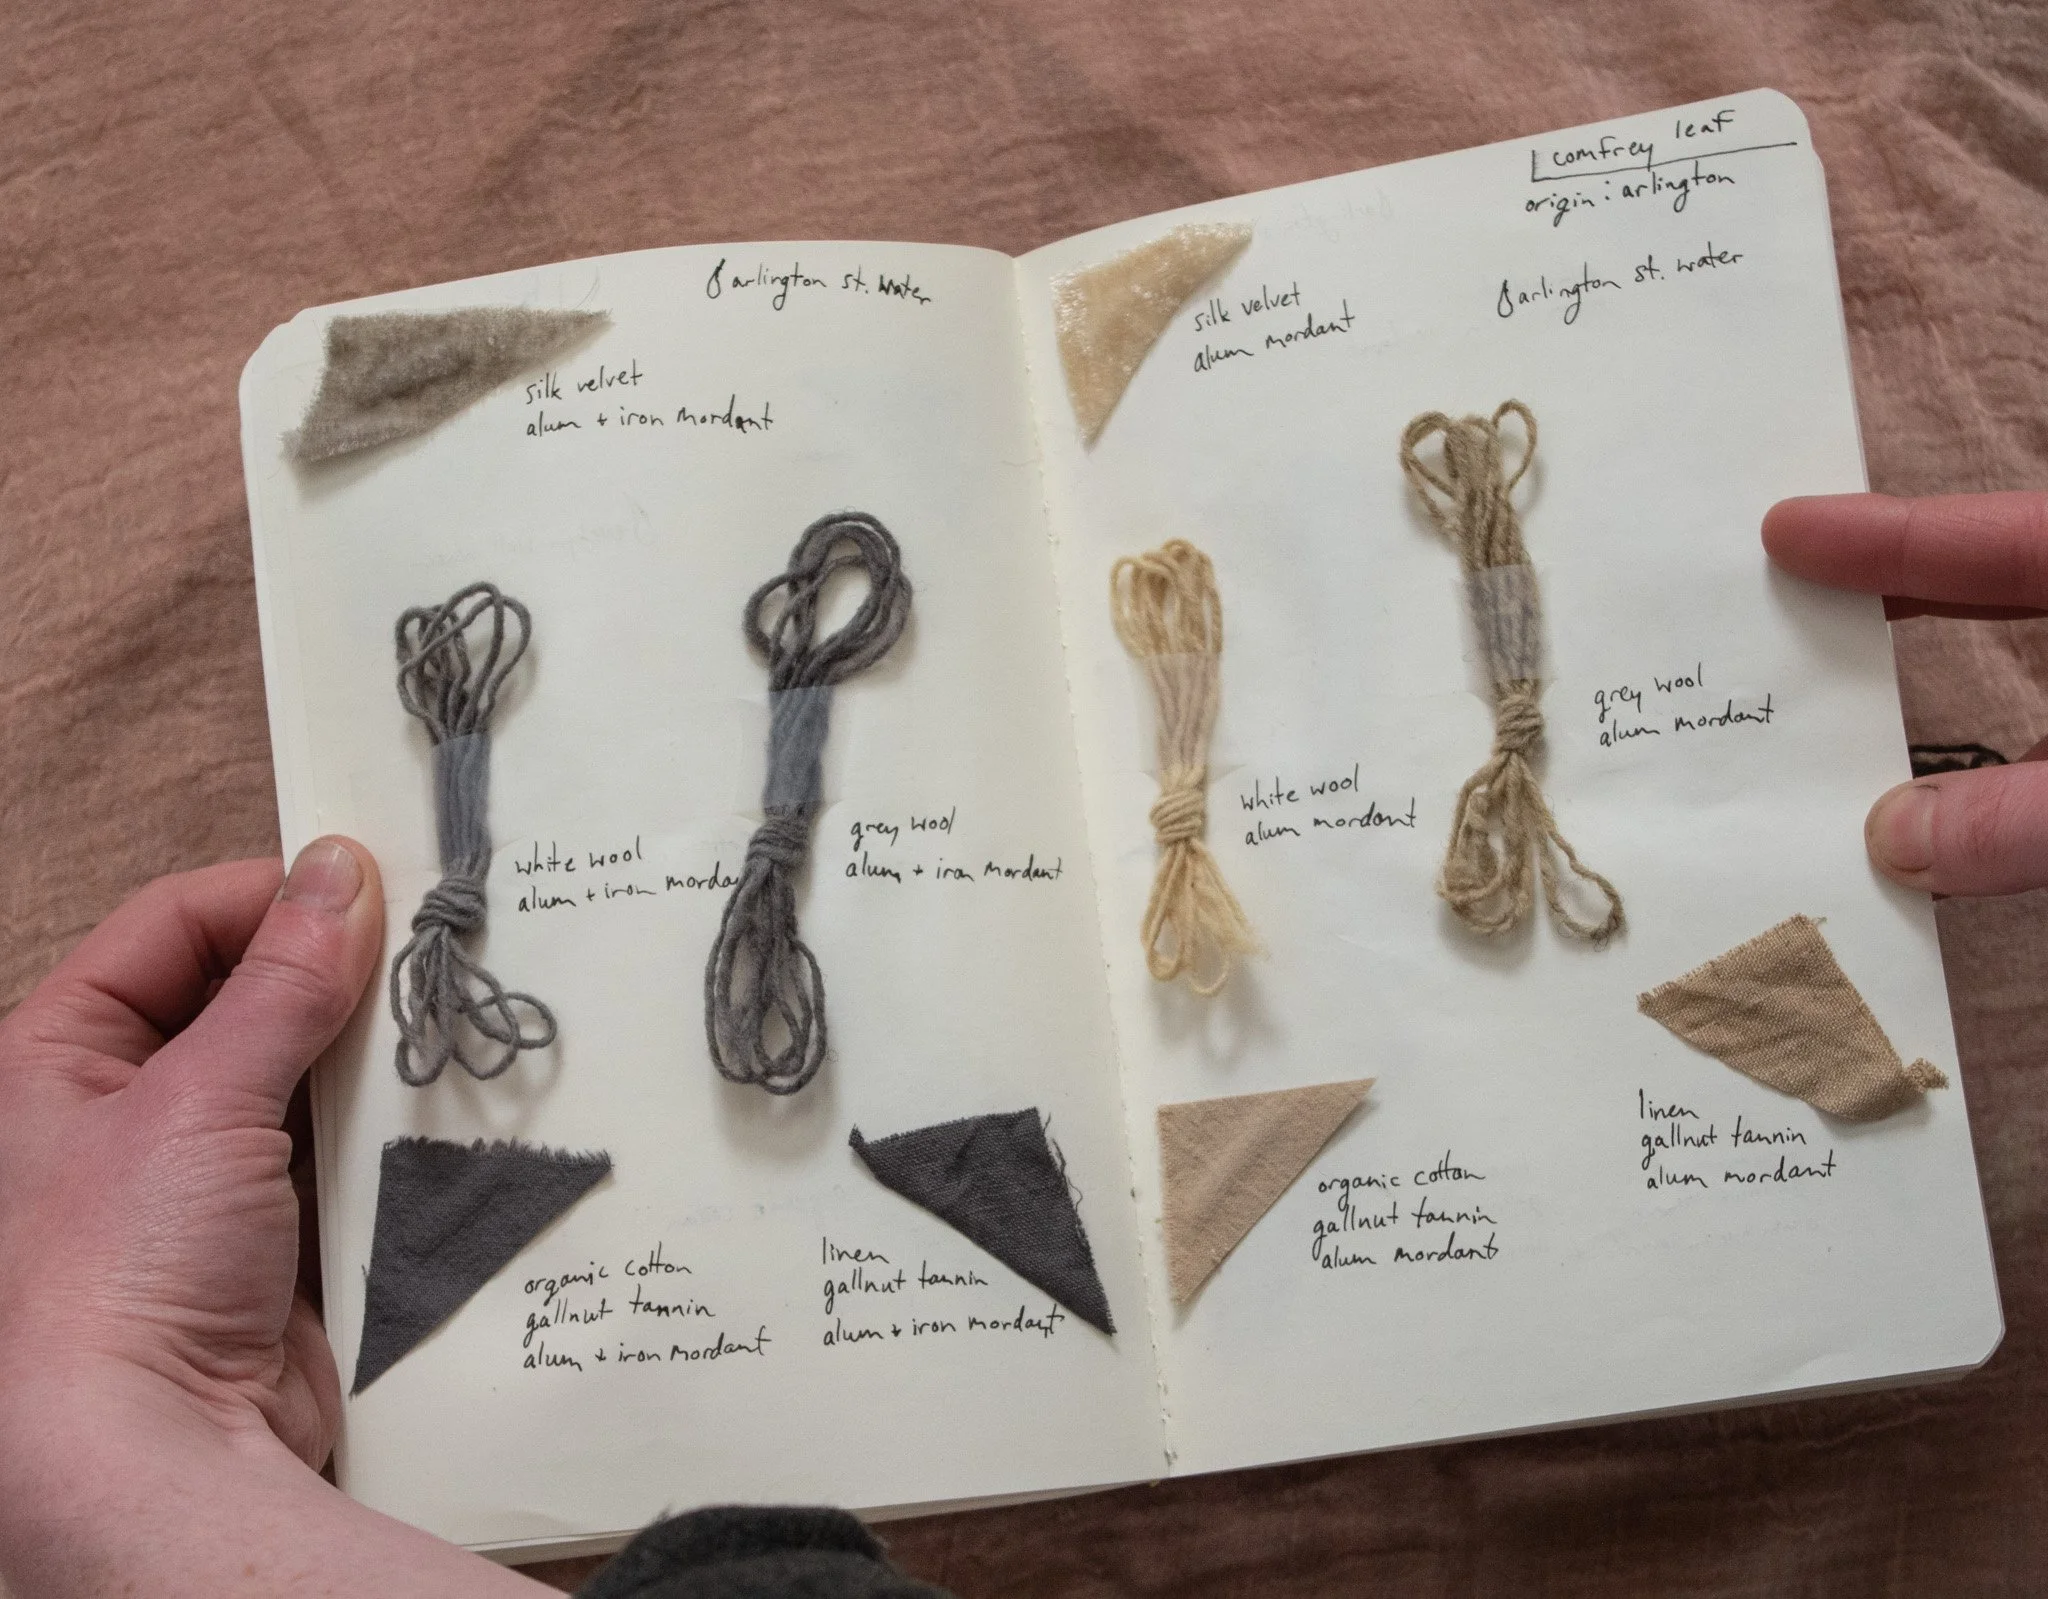 arlington st. water
silk velvet
alum + iron mordant
white wool
alum + iron
grey wool
alum + iron mordant
organic cotton
gallnut tannin
alum + iron mordant
linen
gallnut tannin
alum + iron mordant
comfrey leaf
origin: arlington
arlington st. water
silk velvet
alum mordant
grey wool
alum mordant
white wool
alum mordant
linen
gallnut tannin
alum mordant
organic cotton
gallnut tannin
alum mordant